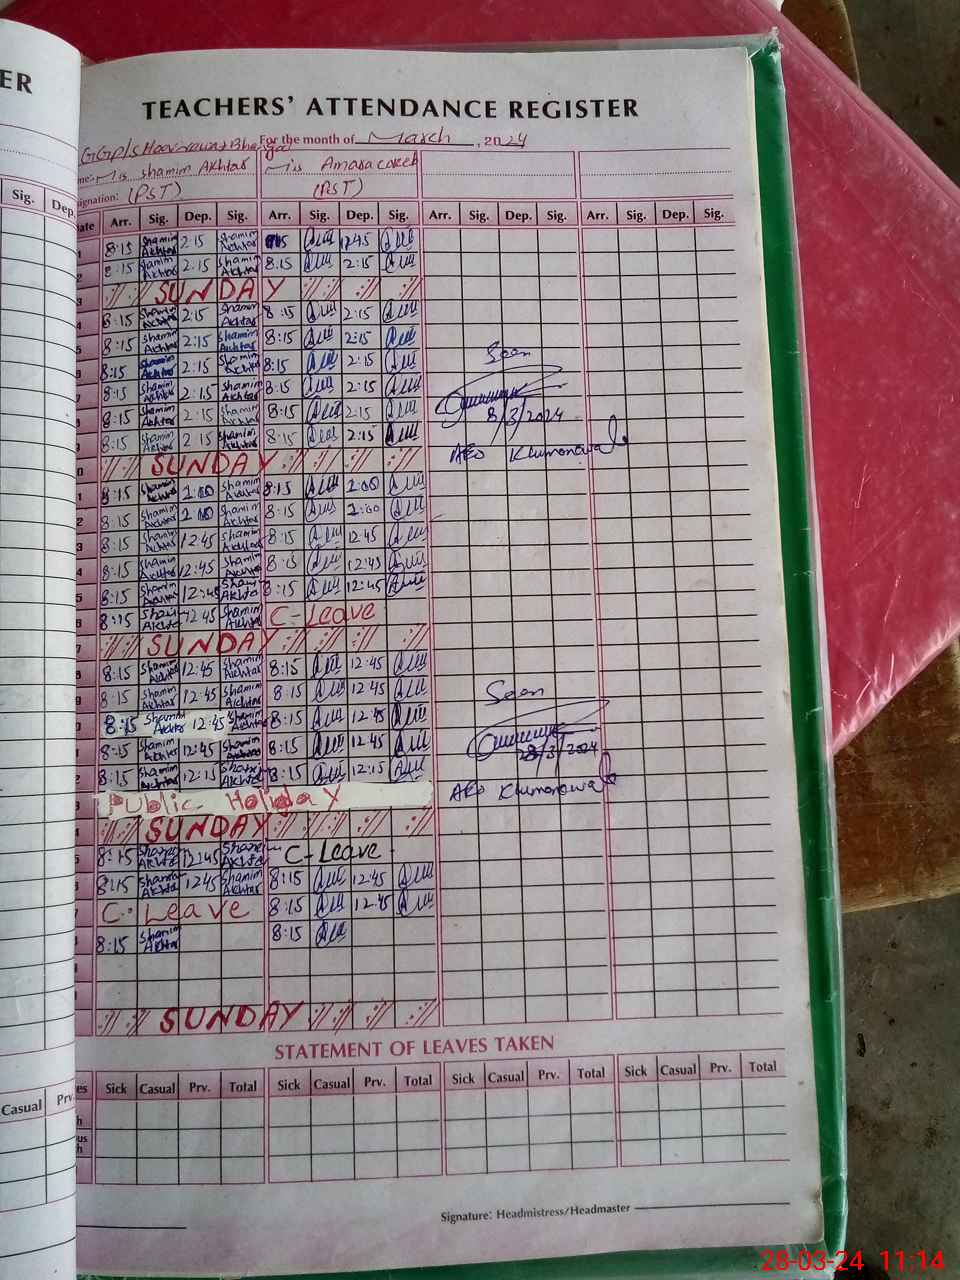 ER
TEACHERS' ATTENDANCE REGISTER
For the month of March, 2024
Mis Shamim Akhtar Mis Amara
signation: (PST) (PST)
Sig. Dep. ate Arr. Sig. Dep. Sig. Arr. Sig. Dep. Sig. Arr. Sig. Dep. Sig. Arr. Sig. Dep. Sig.
8:15 Shamim Akhtar 2:15 Shamim Akhtar 12:45
8:15 Shamim Akhtar 2:15 Shamim Akhtar 8:15 2:15
SUNDAY
8:15 Shamim Akhtar 2:15 Shamim Akhtar 8:15 2:15
8:15 Shamim Akhtar 2:15 Shamim Akhtar 8:15 2:15
8:15 Shamim Akhtar 2:15 Shamim Akhtar 8:15 2:15
Seen
8:15 Shamim Akhtar 2:15 Shamim Akhtar 8:15 2:15
8:15 Shamim Akhtar 2:15 Shamim Akhtar 8:15 2:15
8/3/2024
8:15 Shamim Akhtar 2:15 Shamim Akhtar 8:15 2:15
SUNDAY
8:15 Shamim Akhtar Shamim Akhtar 8:15
8:15 Shamim Akhtar Shamim Akhtar 8:15
8:15 Shamim Akhtar 12:45 Shamim Akhtar 8:15 12:45
8:15 Shamim Akhtar 12:45 Shamim Akhtar 8:15 12:45
8:15 Shamim Akhtar 12:45 Sham Akhtar 8:15 12:45
8:15 Sham Akhtar 12:45 Shamim Akhtar C-Leave
SUNDAY
8:15 Shamim Akhtar 12:45 Shamim Akhtar 8:15 12:45
8:15 Shamim Akhtar 12:45 Shamim Akhtar 8:15 12:45
Seen
8:15 Shamim Akhtar 12:45 Shamim Akhtar 8:15 12:45
8:15 Shamim Akhtar 12:45 Shamim Akhtar 8:15 12:45
/3/2024
8:15 Shamim Akhtar 12:15 Shamim Akhtar 8:15 12:15
Public Holiday
SUNDAY
8:15 Shamim Akhtar 12:45 Shamim Akhtar C-Leave
8:15 Shamim Akhtar 12:45 Shamim Akhtar 8:15 12:45
C. Leave 8:15 12:45
8:15 Shamim Akhtar 8:15
SUNDAY
STATEMENT OF LEAVES TAKEN
Casual Prv. es Sick Casual Prv. Total Sick Casual Prv. Total Sick Casual Prv. Total Sick Casual Prv. Total
Signature: Headmistress/Headmaster
28-03-24 11:14